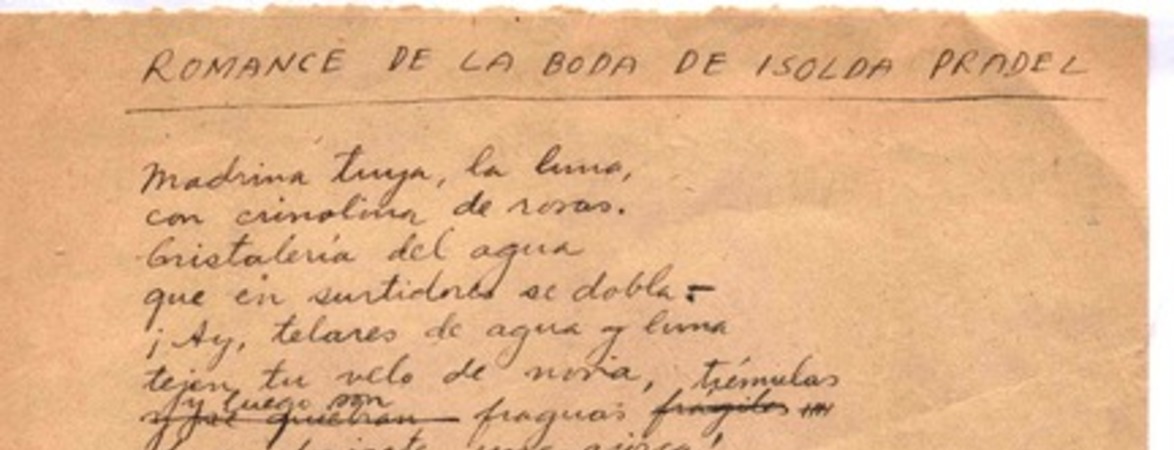 ROMANCE DE LA BODA DE ISOLDA PRADEL
Madrina tuya, la luna,
con crinolina de rosas.
Cristalería del agua
que en surtidores se dobla.-
¡Ay, telares de agua y luna
tejen tu velo de novia,
trémulas
y luego son
y se quiebran fraguas frágiles